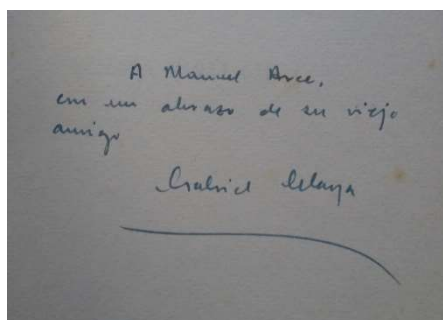 A Manuel Arce,
con un abrazo de su viejo
amigo
Gabriel Celaya